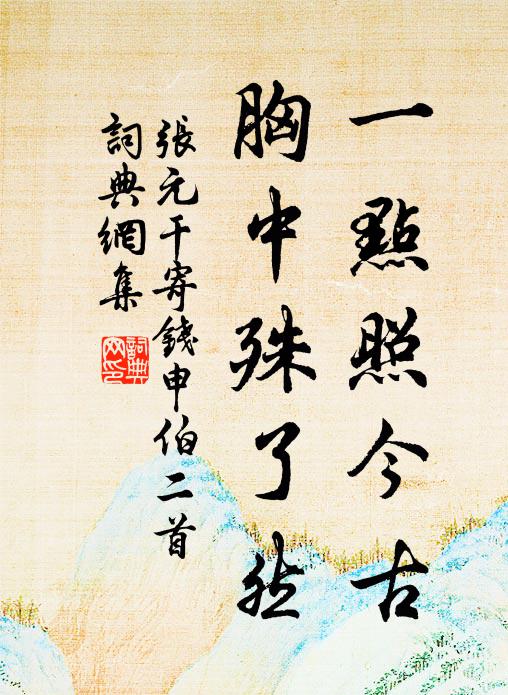 一點照今古
胸中殊了然
張元干寄錢申伯二首
詞典網集
詞典網印